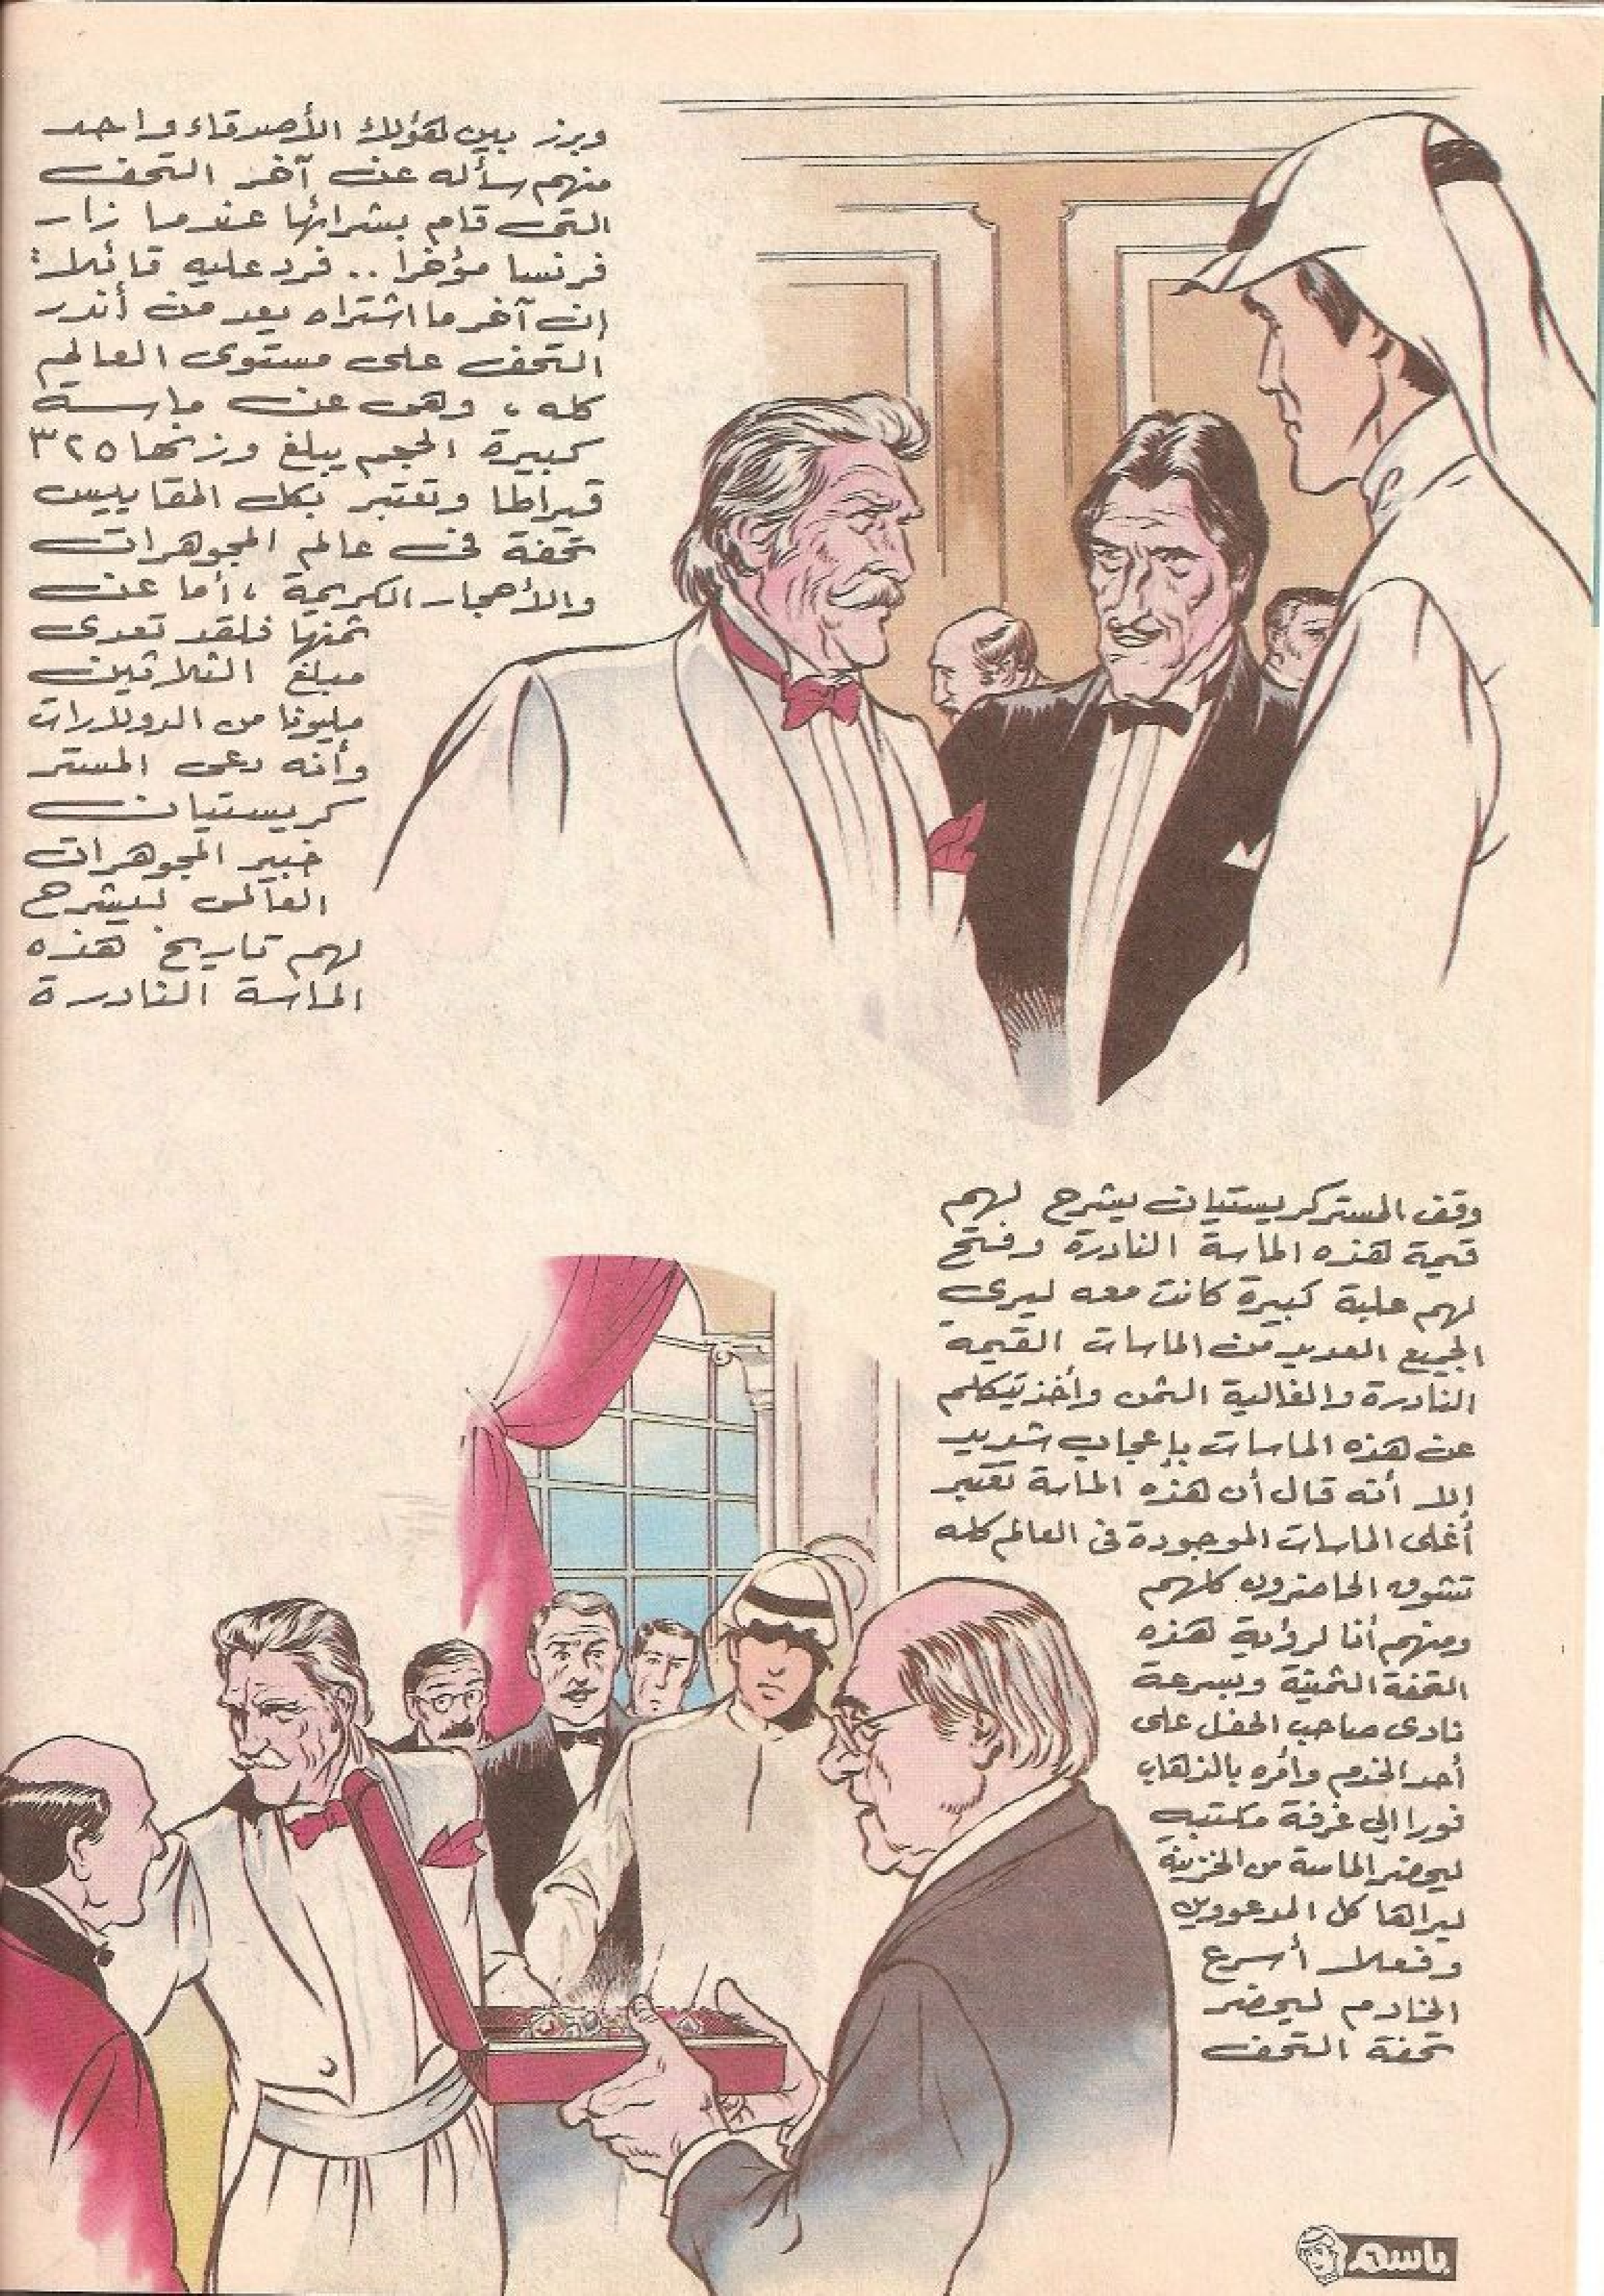 وبرز بين هؤلاء الأصدقاء واحد
منهم سأله عن آخر التحف
التى قام بشرائها عندما زار
فرنسا مؤخرا .. فرد عليه قائلا :
إن آخر ما اشتراه يعد من أندر
التحف على مستوى العالم
كله ، وهى عن ماسة
كبيرة الحجم يبلغ وزنها ٣٢٥
قيراطا وتعتبر بكل المقاييس
تحفة فى عالم المجوهرات
والأحجار الكريمة ، أما عن
ثمنها فلقد تعدى
مبلغ الثلاثين
مليونا من الدولارات
وأنه دعى المستر
كريستيان
خبير المجوهرات
العالمى ليشرح
لهم تاريخ هذه
الماسة النادرة
وقف المستر كريستيان يشرح لهم
قيمة هذه الماسة النادرة وفتح
لهم علبة كبيرة كانت معه ليرى
الجميع العديد من الماسات القيمة
النادرة والغالية الثمن وأخذ يتكلم
عن هذه الماسات بإعجاب شديد
إلا أنه قال أن هذه الماسة تعتبر
أغلى الماسات الموجودة فى العالم كله
تشوق الحاضرون كلهم
ومنهم أنا لرؤية هذه
التحفة الثمينة وبسرعة
نادى صاحب الحفل على
أحد الخدم وأمره بالذهاب
فورا إلى غرفة مكتبه
ليحضر الماسة من الخزينة
ليراها كل المدعووين
وفعلا أسرع
الخادم ليحضر
تحفة التحف
باسم